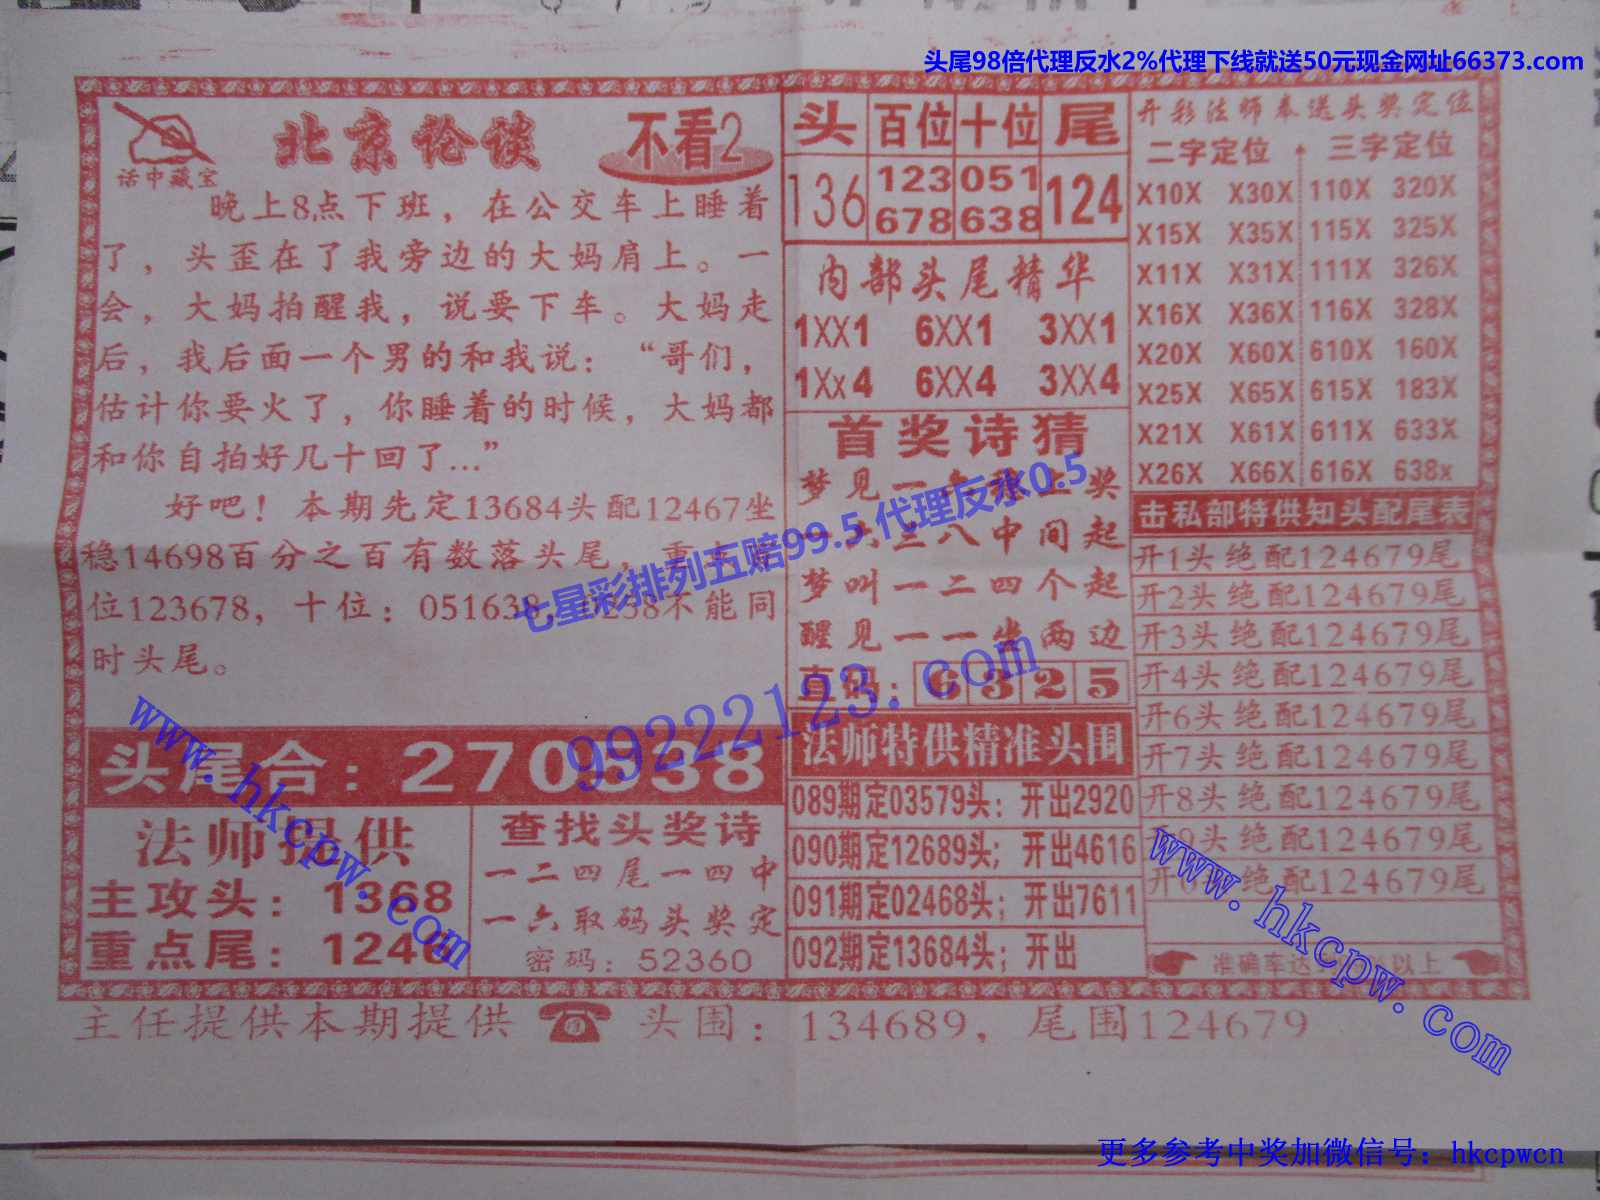 头尾98倍代理反水2%代理下线就送50元现金网址66373.com
话中藏宝
北京论谈
不看2
晚上8点下班，在公交车上睡着
了，头歪在了我旁边的大妈肩上。一
会，大妈拍醒我，说要下车。大妈走
后，我后面一个男的和我说：“哥们，
估计你要火了，你睡着的时候，大妈都
和你自拍好几十回了...”
好吧！本期先定13684头配12467坐
稳14698百分之百有数落头尾，重
位123678，十位：051638 238不能同
时头尾。
头尾合：270538
法师提供
主攻头：1368
重点尾：1246
查找头奖诗
一二四尾一四中
一六取码头奖定
密码：52360
头 百位 十位 尾
136 123 051 124
678 638
内部头尾精华
1XX1 6XX1 3XX1
1Xx4 6XX4 3XX4
首奖诗猜
梦见一 上奖
一六三八中间起
梦叫一二四个起
醒见一一坐两边
直码：6 3 2 5
法师特供精准头围
089期定03579头：开出2920
090期定12689头；开出4616
091期定02468头；开出7611
092期定13684头；开出
开彩法师奉送头奖定位
二字定位 三字定位
X10X X30X 110X 320X
X15X X35X 115X 325X
X11X X31X 111X 326X
X16X X36X 116X 328X
X20X X60X 610X 160X
X25X X65X 615X 183X
X21X X61X 611X 633X
X26X X66X 616X 638x
击私部特供知头配尾表
开1头绝配124679尾
开2头绝配124679尾
开3头绝配124679尾
开4头绝配124679尾
开6头绝配124679尾
开7头绝配124679尾
开8头绝配124679尾
开9头绝配124679尾
开 头绝配124679尾
准确率达 以上
主任提供本期提供 头围：134689，尾围124679
七星彩排列五赔99.5 代理反水0.5
99222123.com
www.hkcpw.com
www.hkcpw.com
更多参考中奖加微信号：hkcpwcn